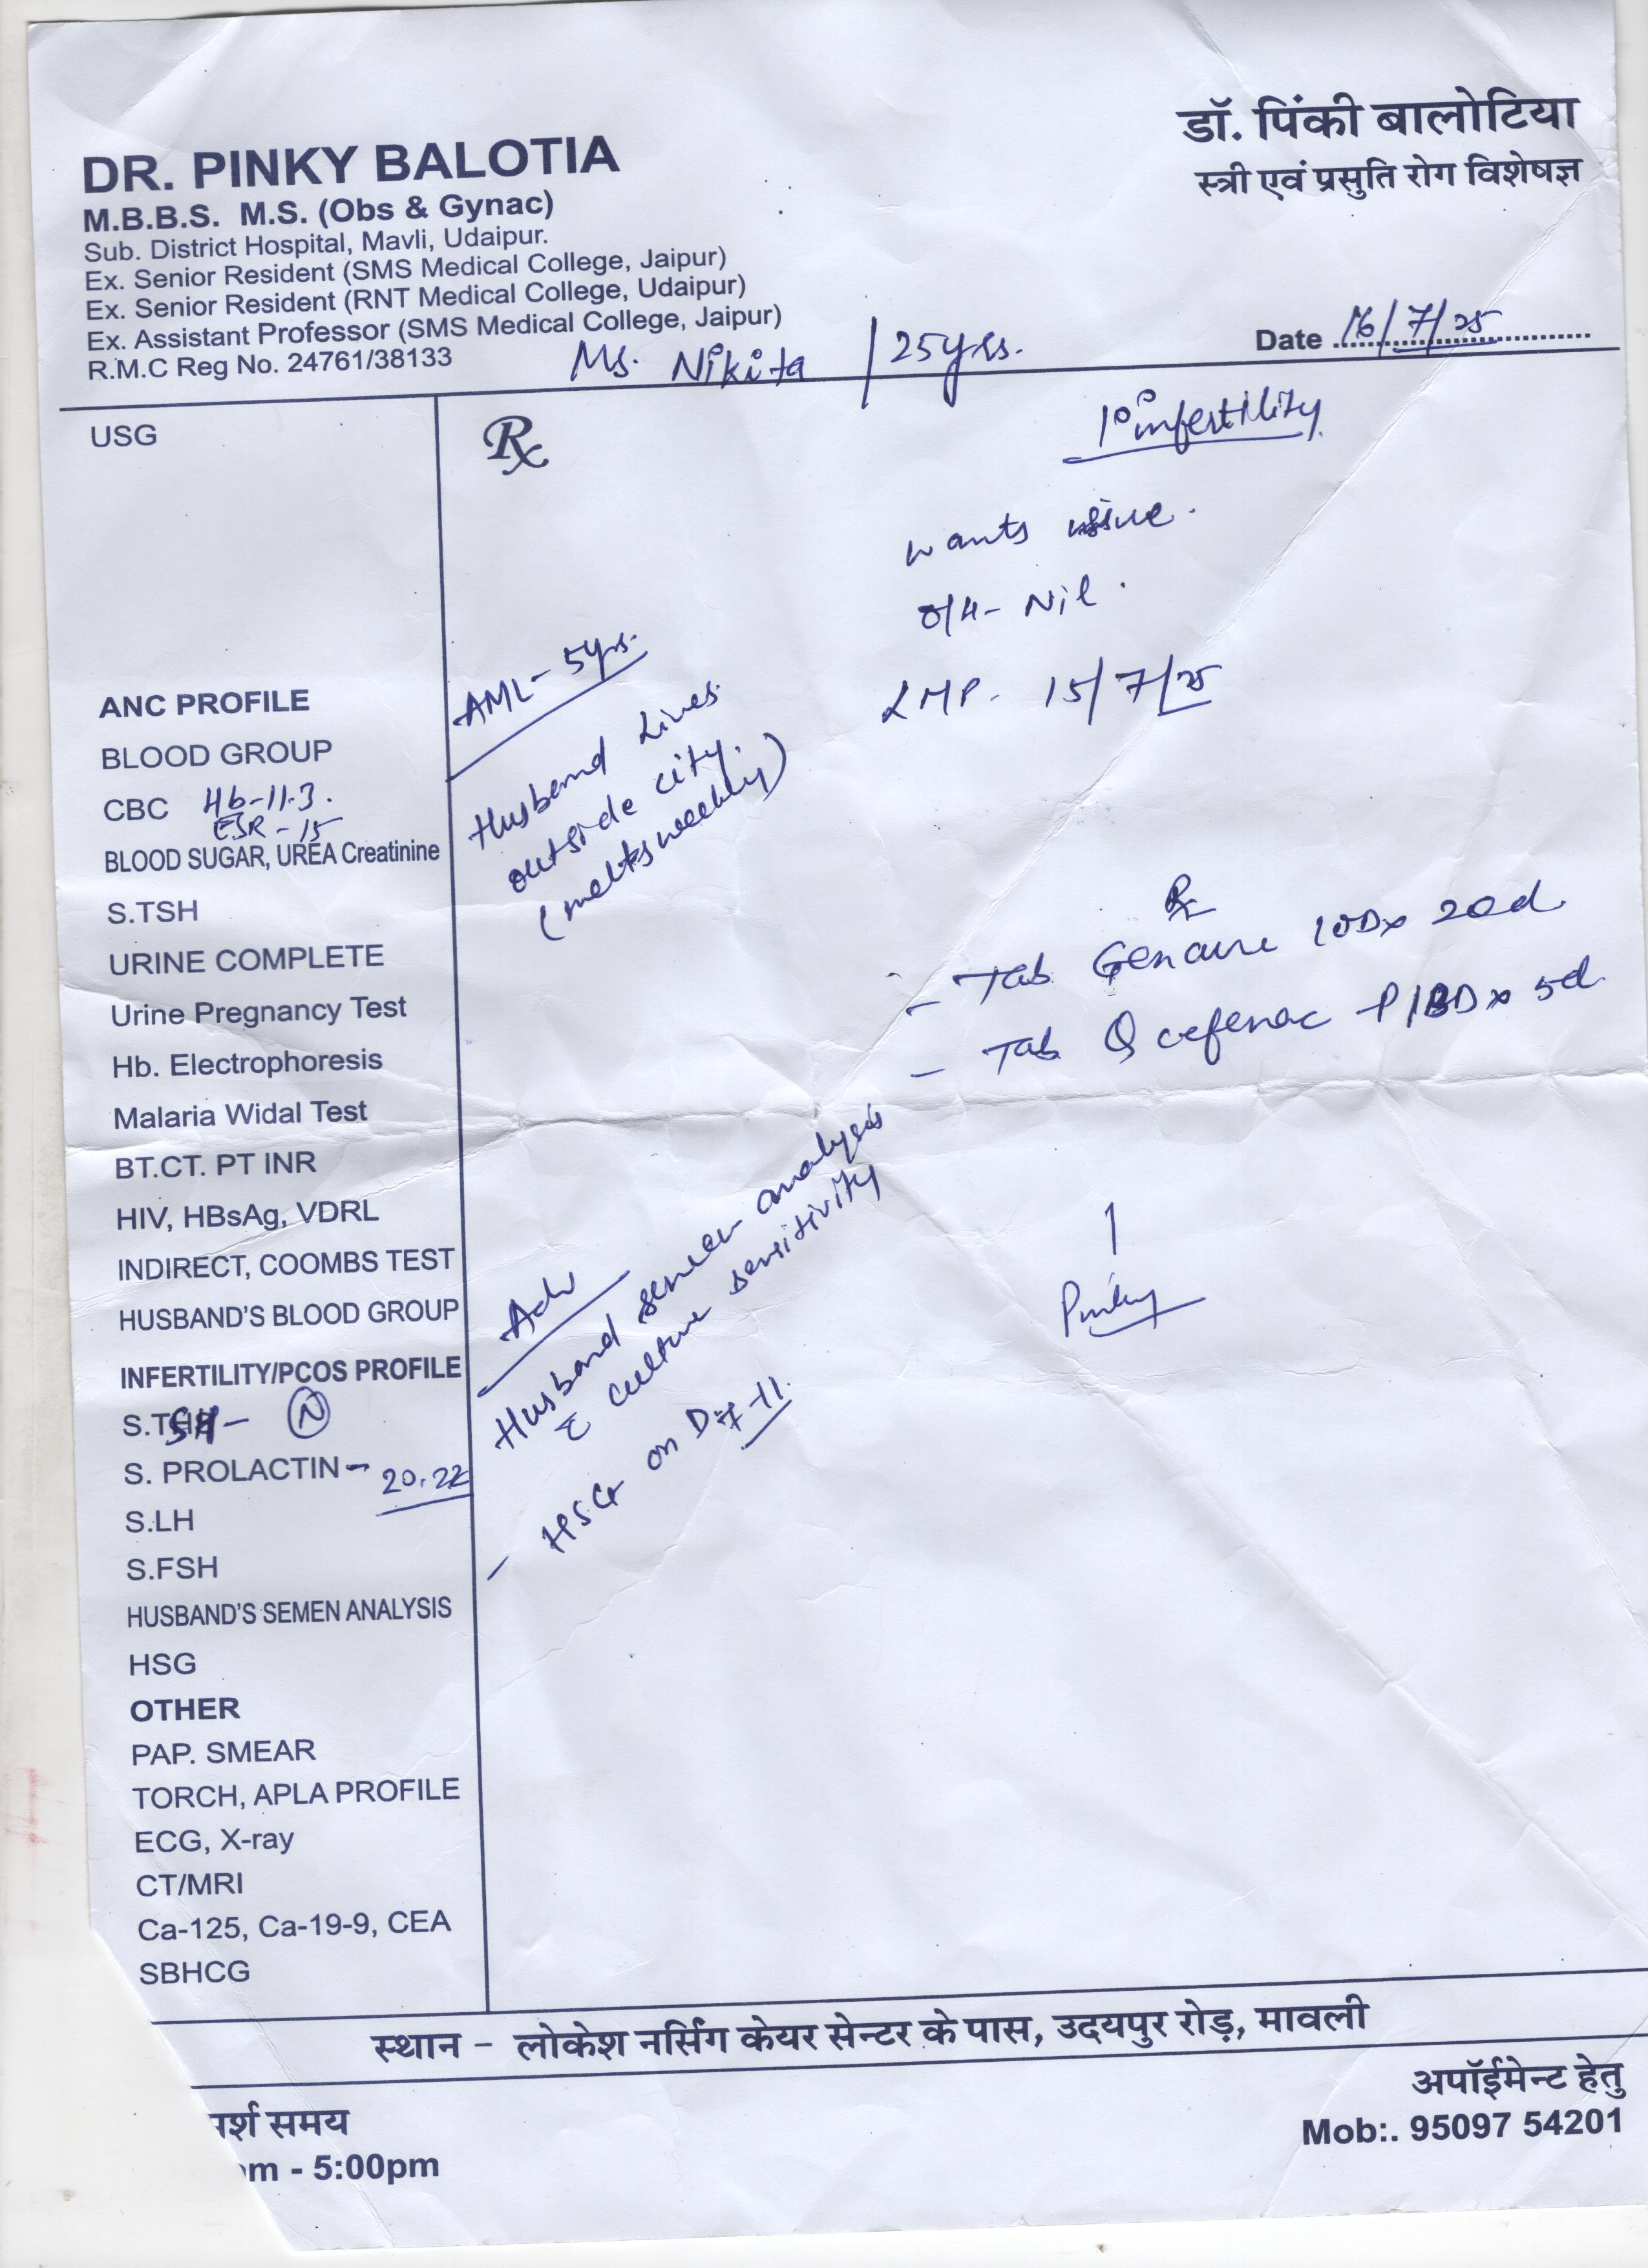 DR. PINKY BALOTIA
M.B.B.S. M.S. (Obs & Gynac)
Sub. District Hospital, Mavli, Udaipur.
Ex. Senior Resident (SMS Medical College, Jaipur)
Ex. Senior Resident (RNT Medical College, Udaipur)
Ex. Assistant Professor (SMS Medical College, Jaipur)
R.M.C Reg No. 24761/38133
डॉ. पिंकी बालोटिया
स्त्री एवं प्रसुति रोग विशेषज्ञ
Date 16/7/25
Ms. Nikita / 25yrs.
USG
ANC PROFILE
BLOOD GROUP
CBC Hb-11.3.
ESR - 15
BLOOD SUGAR, UREA Creatinine
S.TSH
URINE COMPLETE
Urine Pregnancy Test
Hb. Electrophoresis
Malaria Widal Test
BT.CT. PT INR
HIV, HBsAg, VDRL
INDIRECT, COOMBS TEST
HUSBAND'S BLOOD GROUP
INFERTILITY/PCOS PROFILE
- N
S. PROLACTIN - 20.22
S.LH
S.FSH
HUSBAND'S SEMEN ANALYSIS
HSG
OTHER
PAP. SMEAR
TORCH, APLA PROFILE
ECG, X-ray
CT/MRI
Ca-125, Ca-19-9, CEA
SBHCG
Rx
1° infertility
wants issue.
O/H - Nil.
LMP - 15/7/25
AML - 5yrs.
Husband Lives
outside city.
(meets weekly)
Rx
- Tab 1OD x 20d
- Tab -P 1BD x 5d
Adv
Husband semen analysis
c̄ culture sensitivity
- HSG on D7-11.
Pinky
स्थान - लोकेश नर्सिंग केयर सेन्टर के पास, उदयपुर रोड़, मावली
र्श समय
m - 5:00pm
अपॉईमेन्ट हेतु
Mob:. 95097 54201